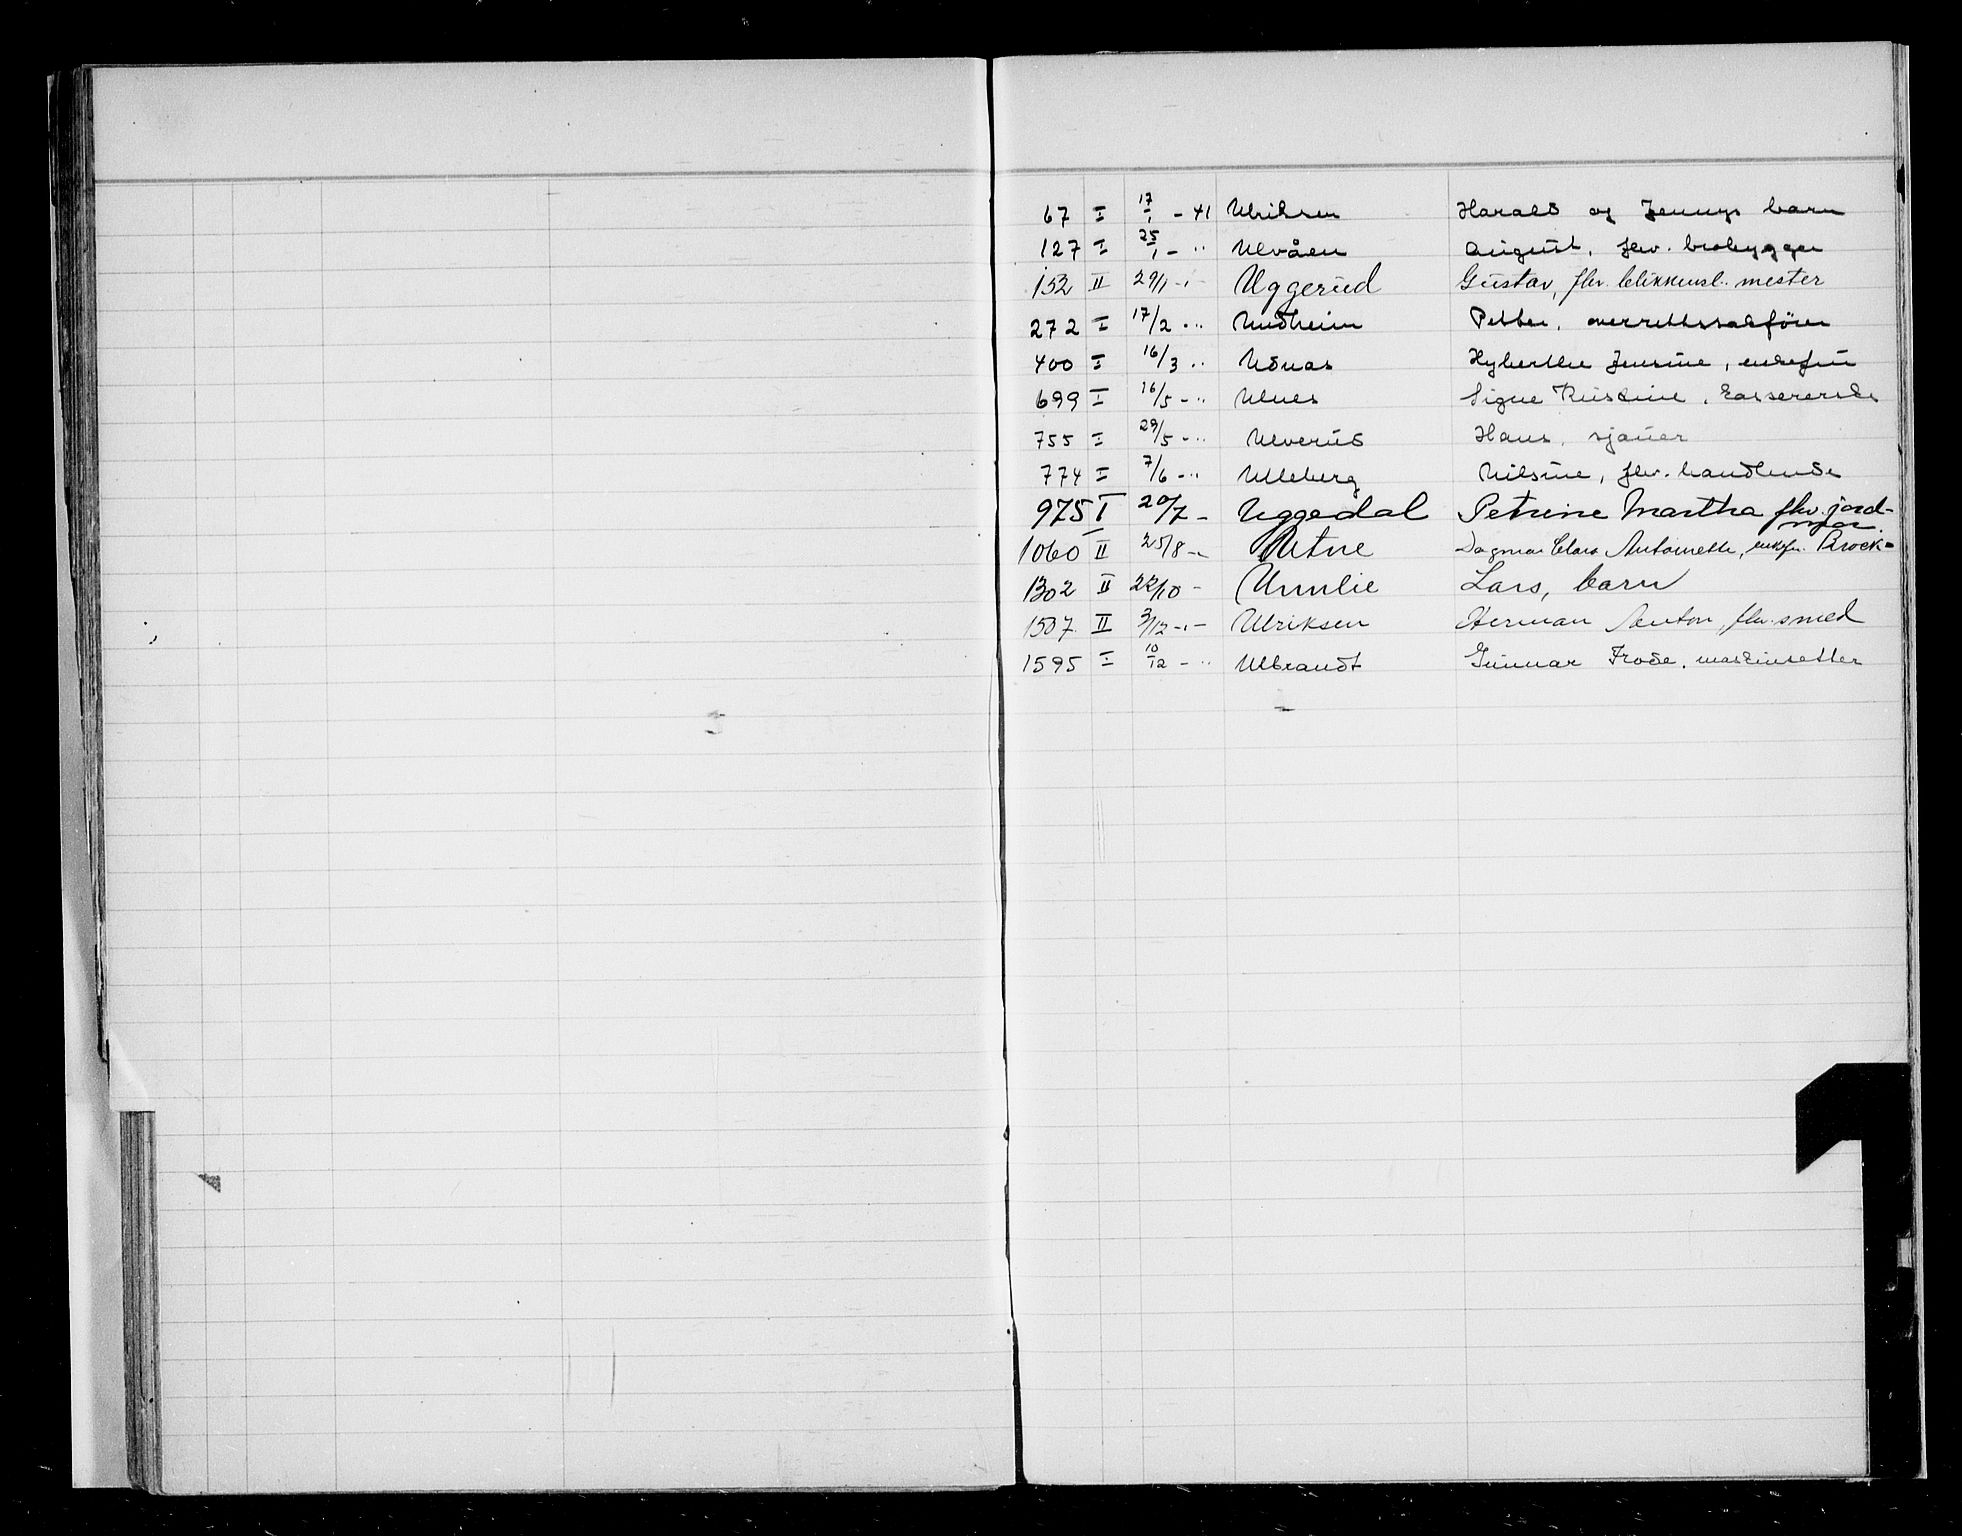 67 I 17/1 - 41 Ulriksen Harald og Jennys barn
127 I 25/1 - " Ulvåen August, fhv. brobygger
152 II 29/1 - " - Uggerud Gustav, fhv. blikkensl. mester
272 I 17/2 - " Undheim Petter, overrettssakfører
400 I 16/3 - " Udnas Jensine, enkefru
699 I 16/5 - " Ulnes Signe Kristine, kassererske
755 I 29/5 - " Ulverud Hans, sjauer
774 I 7/6 - " Ulleberg Nilsine, fhv. handlende
975 I 20/7 - Uggedal Petrine Martha fhv. jord-
mor.
1060 II 25/8 - " Utne Dagmar Clara Antoinette, enkefr. Brock-
1302 II 22/10 - Unnlie Lars, barn
1507 II 3/12 - " - Ulriksen Herman Anton, fhv. smed
1595 I 10/12 - " Ulbrandt Gunnar Frode, maskinsetter